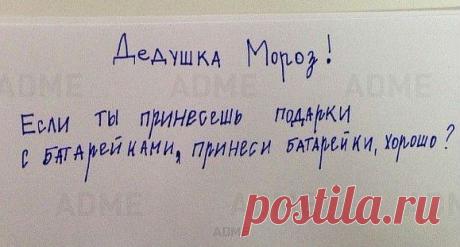 Дедушка Мороз!
Если ты принесешь подарки
с батарейками, принеси батарейки, хорошо?
ADME
ADME
ADME
ADME
ADME
postila.ru